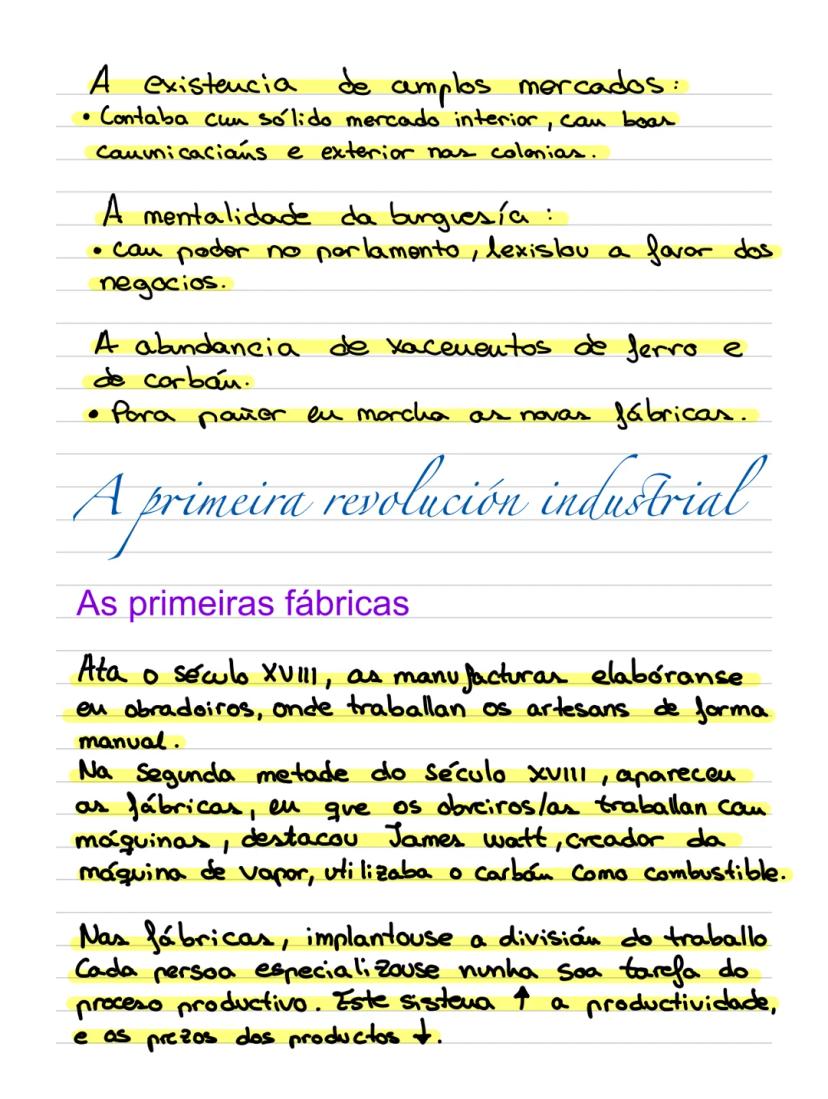 A existencia de amplos mercados:
• Contaba cun sólido mercado interior, con boas
comunicacións e exterior nas colonias.
A mentalidade da burguesía:
• Con poder no parlamento, lexislou a favor dos
negocios.
A abundancia de xacementos de ferro e
de carbón.
• Para poñer en marcha as novas fábricas.
A primeira revolución industrial
As primeiras fábricas
Ata o século XVIII, as manufacturas elabóranse
en obradoiros, onde traballan os artesans de forma
manual.
Na segunda metade do século XVIII, apareceu
as fábricas, en que os obreiros/as traballan con
máquinas, destacou James Watt, creador da
máquina de vapor, utilizaba o carbón como combustible.
Nas fábricas, implantouse a división do traballo
Cada persoa especializouse nunha soa tarefa do
proceso productivo. Este sistema ↑ a productividade,
e os prezos dos productos ↓.